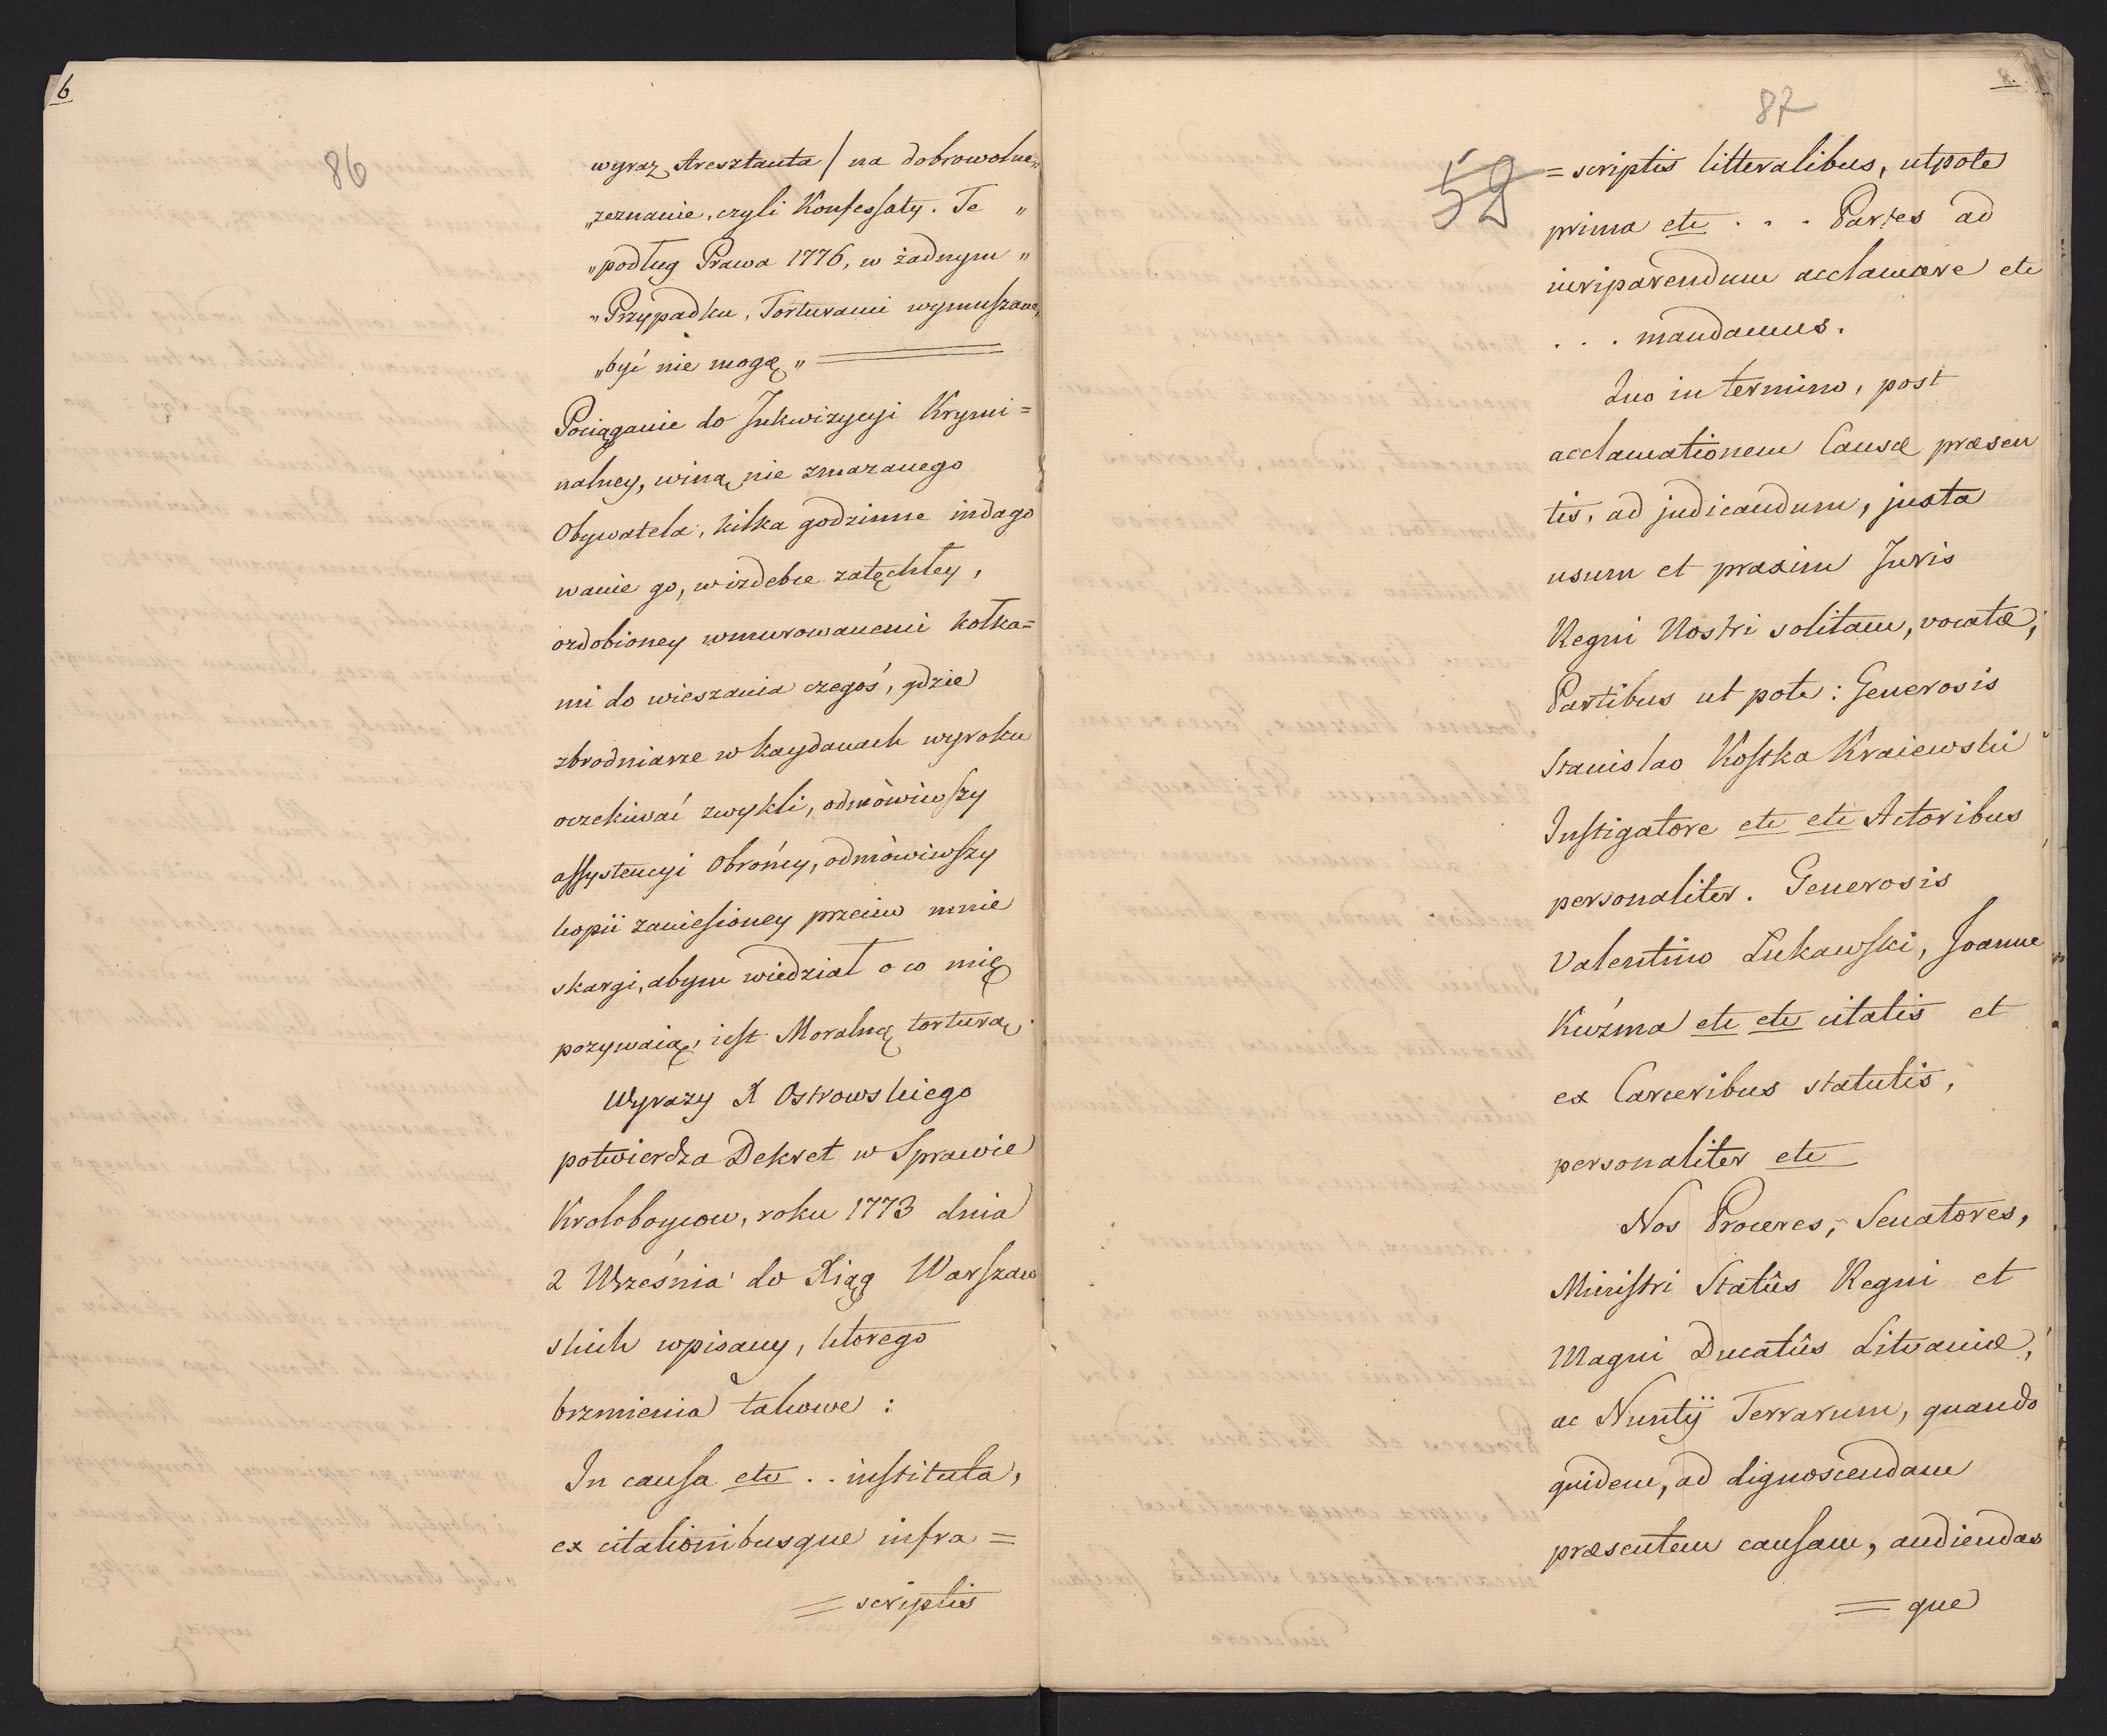 6
86
wyraz Aresztanta / na dobrowolne „
„zeznanie, czyli Konfessaty. Te „
„podług Prawa 1776, w żadnym „
„Przypadku, Torturami wymuszane,
„być nie mogą „
Pociąganie do Inkwizycyi Krymi=
nalney, winą nie zmazanego
Obywatela, kilka godzinne indago
wanie go, w izdebce zatęchłey,
ozdobioney wmurowanemi kołka=
mi do wieszania czegoś, gdzie
zbrodniarze w kaydanach wyroku
oczekiwać zwykli, odmówiwszy
assystencyi Obrońcy, odmówiwszy
kopii zaniesioney przeciw mnie
skargi, abym wiedział o co mię
pozywaią, iest Moralną torturą.
Wyrazy X Ostrowskiego
potwierdza Dekret w Sprawie
Kroloboycow, roku 1773 dnia
2 Września do Xiąg Warszaw
skich wpisany, ktorego
brzmienia takowe :
In causa etc . . instituta,
ex citationibusque infra =
= scriptis
8.
87
58
= scriptis litteralibus, utpote
prima etc . . . Partes ad
iuriparendum acclamare etc
. . . mandamus.
Quo in termino, post
acclamationem Causæ præsen
tis, ad judicandum, juxta
usum et praxim Juris
Regni Nostri solitam, vocatæ,
Partibus ut pote : Generosis
Stanislao Kostka Kraiewski
Instigatore etc etc Actoribus
personaliter. Generosis
Valentino Łukawski, Joanne
Kuźma etc etc citatis et
ex Carceribus statutis,
personaliter etc
Nos Proceres, Senatores,
Ministri Statûs Regni et
Magni Ducatûs Litvaniæ,
ac Nuntij Terrarum, quando
quidem, ad dignoscendam
præsentem causam, audiendas
= que